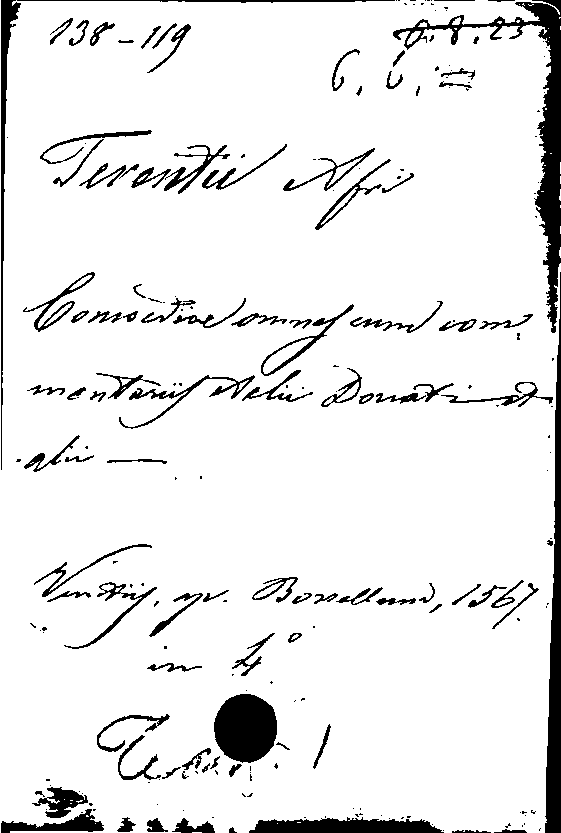 138-119 6.8.23
6.6.=
Terentii Afri
Comoediae omnes cum com
mentariis Aelii Donati et
alii —
Venetiis, ap. Bonellum, 1567.
in 4°
1